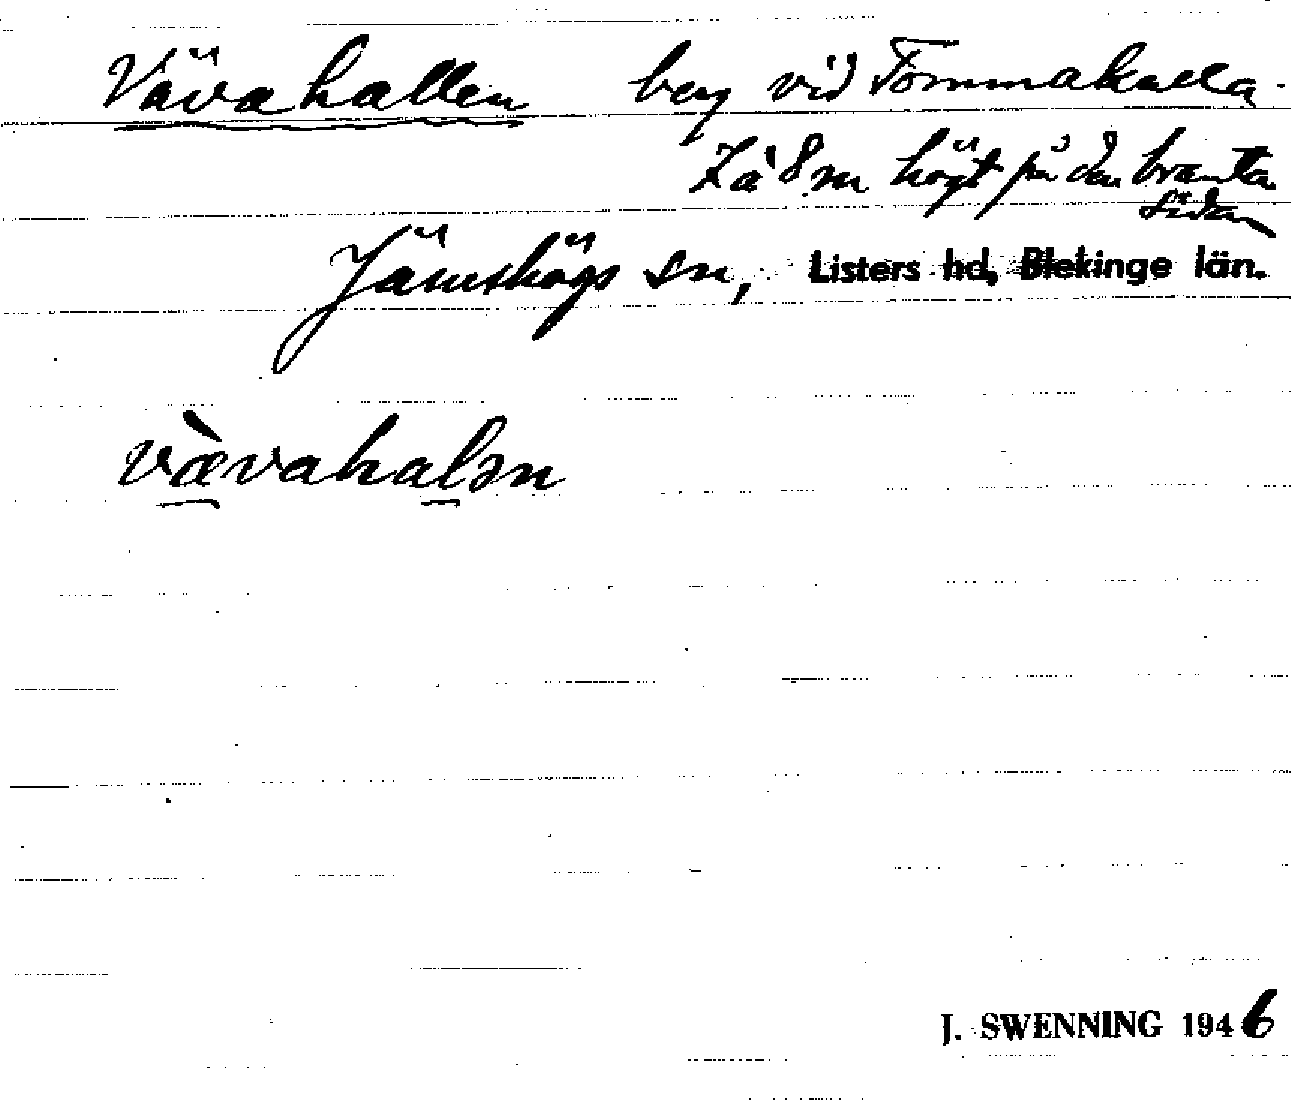 Vävahallen berg vid Tommakulla.
7 à 8 m högt på den branta
sidan
Jämshögs sn, Listers hd, Blekinge län.
vævahalən
J. SWENNING 1946